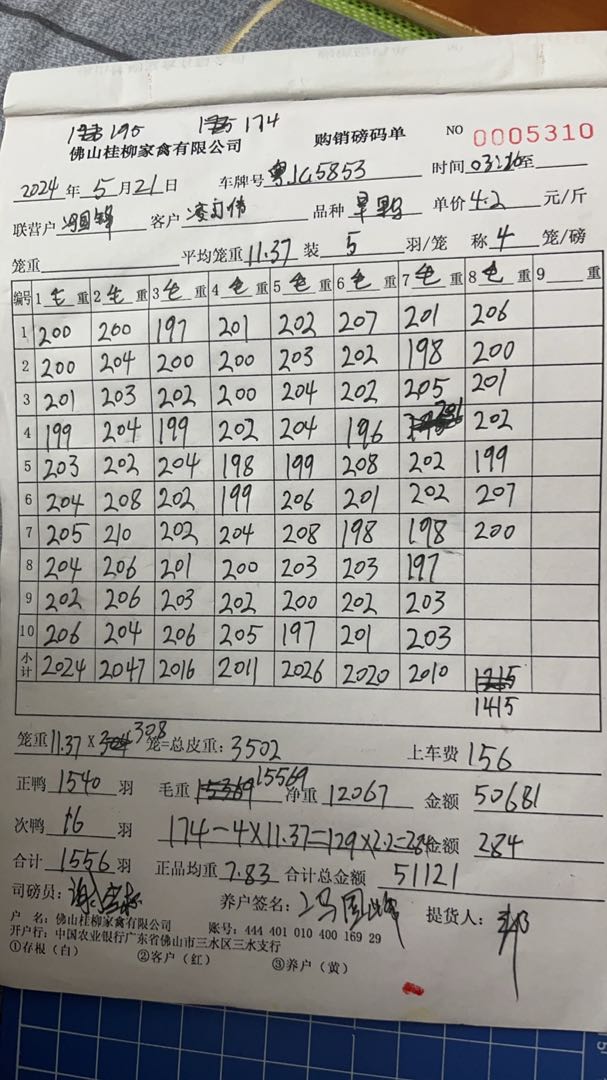 190 174
佛山桂柳家禽有限公司 购销磅码单 NO 0005310
2024年5月21日 车牌号 粤 5853 时间 至
联营户 客户 品种 单价 4.2 元/斤
笼重 平均笼重 11.37 装 5 羽/笼 称 4 笼/磅
编号 1 毛 重 2 毛 重 3 毛 重 4 毛 重 5 毛 重 6 毛 重 7 毛 重 8 毛 重 9 重
1 200 200 197 201 202 207 201 206
2 200 204 200 200 203 202 198 200
3 201 203 202 200 204 202 205 201
4 199 204 199 202 204 196 201 202
5 203 202 204 198 199 208 202 199
6 204 208 202 199 206 201 202 207
7 205 210 202 204 208 198 198 200
8 204 206 201 200 203 203 197
9 202 206 203 202 200 202 203
10 206 204 206 205 197 201 203
小计 2024 2047 2016 2011 2026 2020 2010 1215
1415
笼重 11.37 X 304 308 笼=总皮重: 3502 上车费 156
正鸭 1540 羽 毛重 15369 15569 净重 12067 金额 50681
次鸭 16 羽 174-4×11.37=129×2.2=284 金额 284
合计 1556 羽 正品均重 7.83 合计总金额 51121
司磅员: 养户签名: 冯国 提货人:
户 名: 佛山桂柳家禽有限公司 账号: 444 401 010 400 169 29
开户行: 中国农业银行广东省佛山市三水区三水支行
①存根(白) ②客户(红) ③养户(黄)